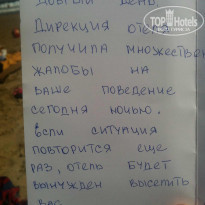 ДОБРЫЙ ДЕНЬ
TOP HOTELS
ДИРЕКЦИЯ ОТЕЛ
ПОЛУЧИЛА МНОЖЕСТВЕН
ЖАЛОБЫ НА
ВАШЕ ПОВЕДЕНИЕ
СЕГОДНЯ НОЧЬЮ.
ЕСЛИ СИТУАЦИЯ
ПОВТОРИТСЯ ЕЩЕ
РАЗ, ОТЕЛЬ БУДЕТ
ВЫНУЖДЕН ВЫСЕЛИТЬ
ВАС